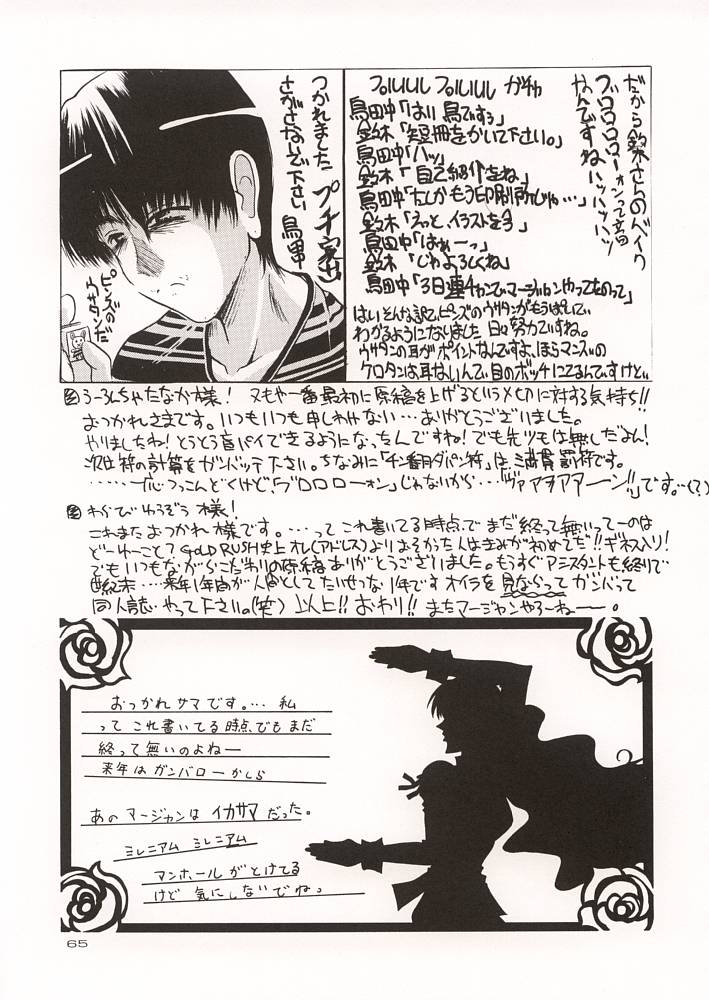 だから鈴木さんのバイク
ブロロロローォンって云う
なんですねハッハッハッ
プルルルル プルルルル ガチャ
鳥田中「はい 鳥ですぅ」
鈴木「短冊をかいて下さい。」
鳥田中「ハッ」
鈴木「自己紹介をね」
鳥田中「たしかもう印刷所じゃ…」
鈴木「えっと、イラストを今」
鳥田中「はぁーっ」
鈴木「じゃよろしくね」
鳥田中「3日連チャンでマージャンやってたのって」
はいそんな訳でピンズのウサタンがもうぱいで
わかるようになりました 日々努力ですね。
ウサタンの耳がポイントなんですよ、ほらマンズの
ケロタンは耳ないんで目のポッチにてるんですけど…
つかれました プチ家出
さがさないで下さい 鳥田中
ピンズの
ウサタンだ
うーろんちゃたなか様! またもや一番最初に原稿を上げるというメ切に対する気持ち!!
おつかれさまです。いつもいつも申しわけない…ありがとうございました。
やりましたね!とうとう盲パイできるようになったんですね!でも先ヅモは無しだよん!
次は符の計算をガンバッテ下さい。ちなみに「チン番月ダパン符」は満貫罰符です。
……でしつこんどくけど、「ブロロローォン」じゃないから…『ヴァアヲアアーン!!』です。…(?)
わかびゆうぞう様!
これまたおつかれ様です。…って これ書いてる時点で まだ終って無いってーのは
どーゆーことっ? GOLD RUSH史上オレ(アドレス)よりおそかった人はきみが初めてだ!!ギネス入り!
でもいつもながらこだわりの原稿ありがとうございました。もうすぐアシスタントも終りで
世紀末…来年1年間が人間としてたいせつな1年ですオイラを見ならってガンバって
同人誌やって下さい。(笑) 以上!! おわり!! またマージャンやろーねー。
おつかれサマです。… 私
って これ書いてる時点でもまだ
終って無いのよねー
来年はガンバローかしら
あの マージャンは イカサマ だった。
ミレニアム ミレニアム
マンホール がとけてる
けど 気にしないでねっ
65